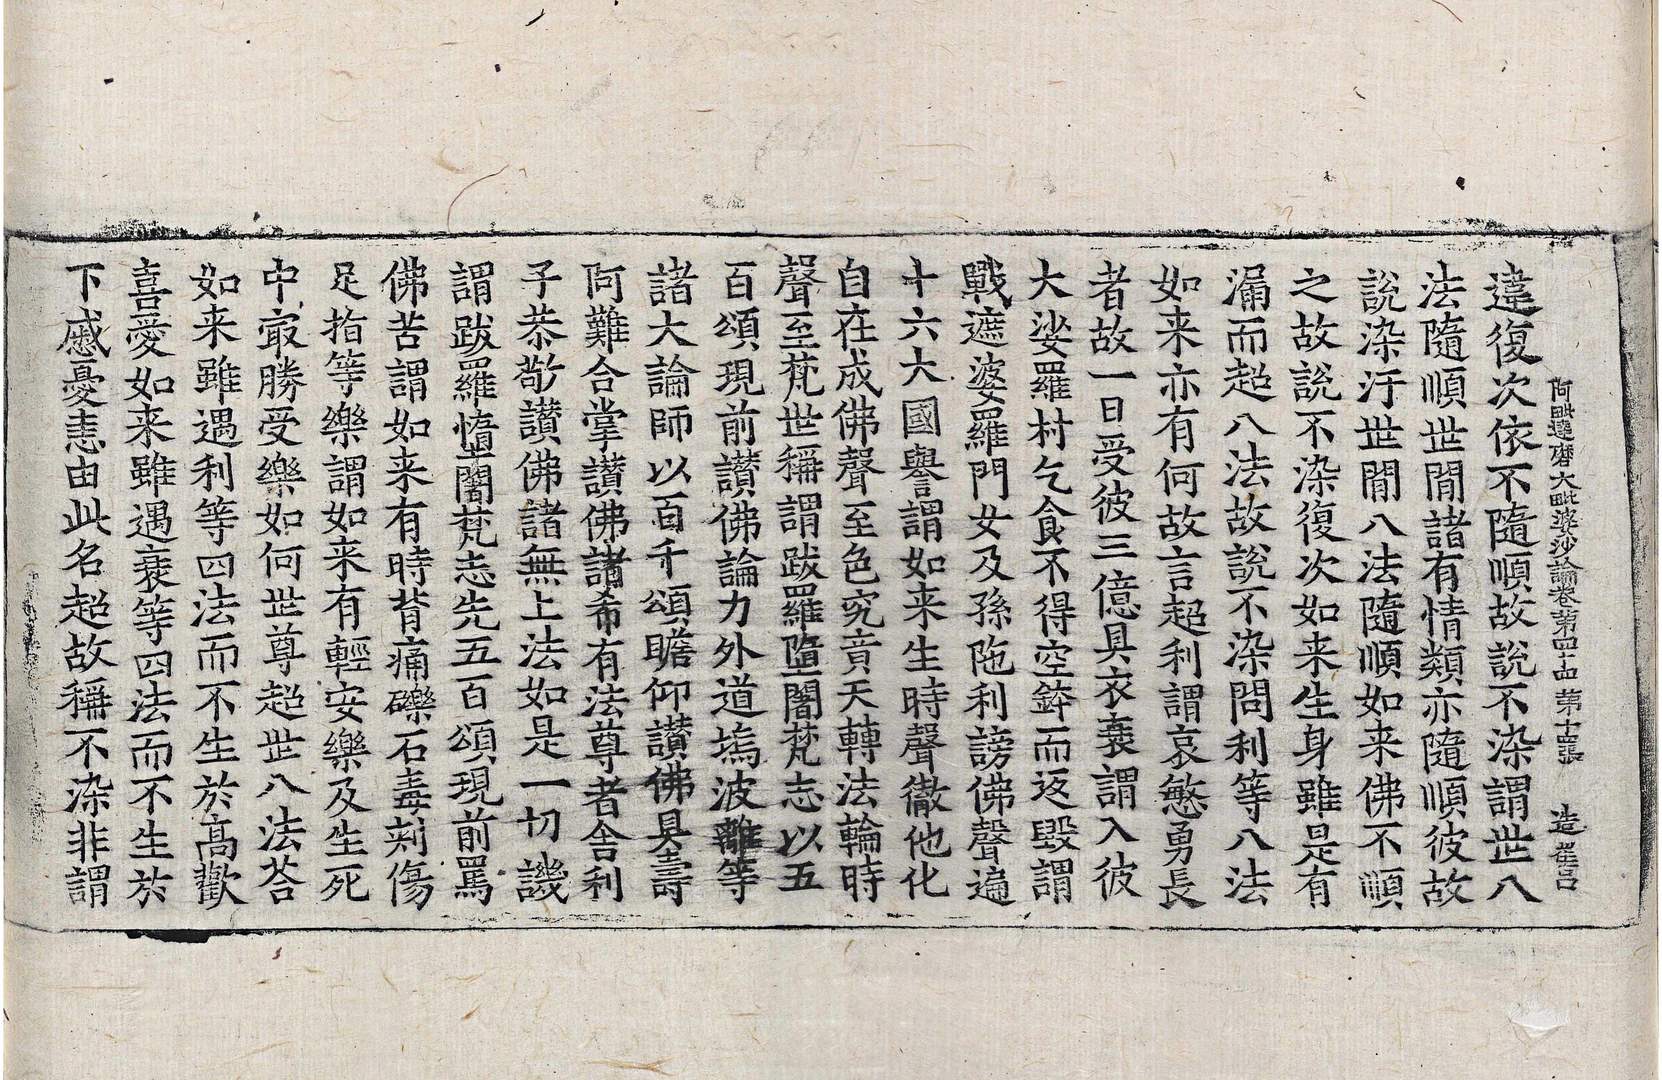 阿毗達磨大毗婆沙論卷第四十四 第十五張 造 崔呂
違復次依不隨順故說不染謂世八
法隨順世間諸有情類亦隨順彼故
說染汙世間八法隨順如来佛不順
之故說不染復次如来生身雖是有
漏而超八法故說不染問利等八法
如来亦有何故言超利謂哀愍勇長
者故一日受彼三億具衣衰謂入彼
大娑羅村乞食不得空鉢而返毀謂
戰遮婆羅門女及孫陁利謗佛聲遍
十六大國譽謂如来生時聲徹他化
自在成佛聲至色究竟天轉法輪時
聲至梵世稱謂跋羅墮闍梵志以五
百頌現前讃佛論力外道塢波離等
諸大論師以百千頌瞻仰讃佛具壽
阿難合掌讃佛諸希有法尊者舍利
子恭敬讃佛諸無上法如是一切譏
謂跋羅憜闍梵志先五百頌現前罵
佛苦謂如来有時背痛礫石毒刾傷
足指等樂謂如来有輕安樂及生死
中㝡勝受樂如何世尊超世八法荅
如来雖遇利等四法而不生於高歡
喜愛如来雖遇衰等四法而不生於
下慼憂恚由此名超故稱不染非謂